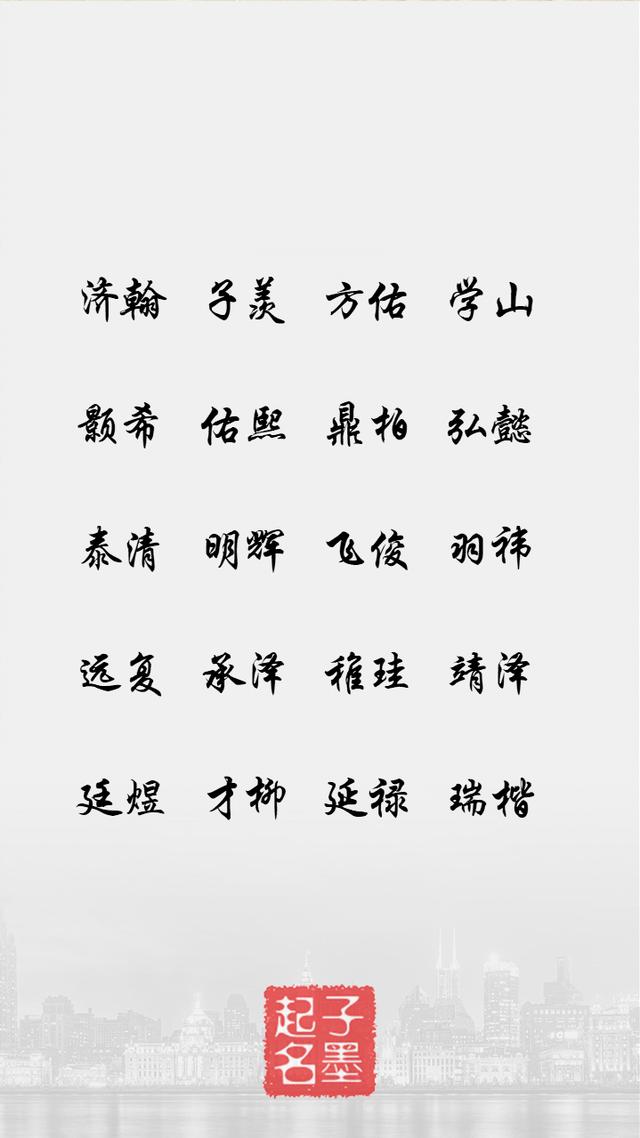 济翰 子羡 方佑 学山
颢希 佑熙 鼎柏 弘懿
泰清 明辉 飞俊 羽祎
远复 承泽 稚珪 靖泽
廷煜 才柳 延禄 瑞楷
子墨
起名